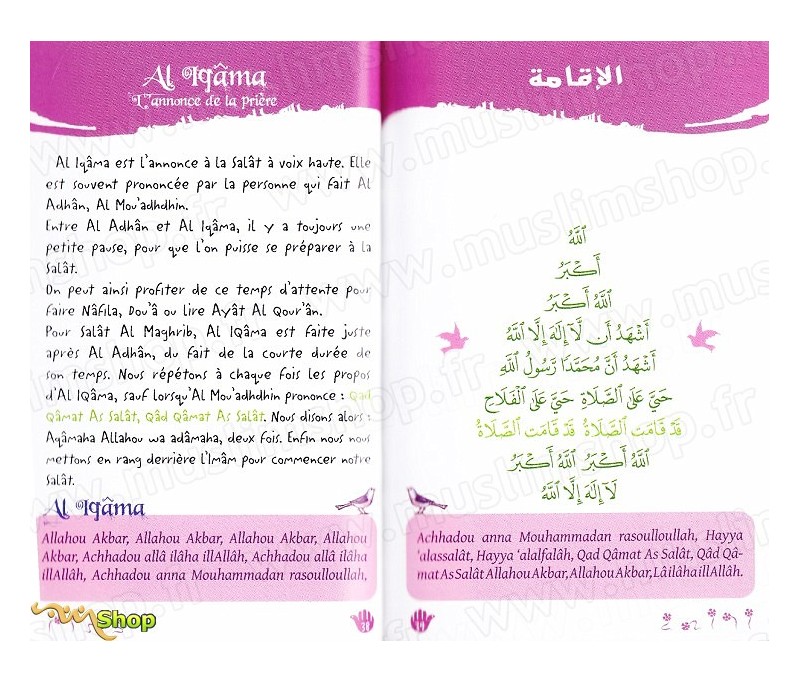 Al Iqâma
L'annonce de la prière
Al Iqâma est l'annonce à la Salât à voix haute. Elle
est souvent prononcée par la personne qui fait Al
Adhân, Al Mou'adhdhin.
Entre Al Adhân et Al Iqâma, il y a toujours une
petite pause, pour que l'on puisse se préparer à la
Salât.
On peut ainsi profiter de ce temps d'attente pour
faire Nâfila, Dou'â ou lire Ayât Al Qour'ân.
Pour Salât Al Maghrib, Al IQâma est faite juste
après Al Adhân, du fait de la courte durée de
son temps. Nous répétons à chaque fois les propos
d'Al IQâma, sauf lorsqu'Al Mou'adhdhin prononce : Qad
Qâmat As Salât, Qâd Qâmat As Salât. Nous disons alors :
Aqâmaha Allahou wa adâmaha, deux fois. Enfin nous nous
mettons en rang derrière l'Imâm pour commencer notre
Salât.
Al Iqâma
Allahou Akbar, Allahou Akbar, Allahou Akbar, Allahou
Akbar, Achhadou allâ ilâha illAllâh, Achhadou allâ ilâha
illAllâh, Achhadou anna Mouhammadan rasoulloullah,
Shop
38
الإقامة
اللَّهُ
أَكْبَرُ
اللَّهُ أَكْبَرُ
أَشْهَدُ أَن لَّا إِلَهَ إِلَّا اللَّهُ
أَشْهَدُ أَنَّ مُحَمَّدًا رَّسُولُ اللَّهِ
حَيَّ عَلَى الصَّلَاةِ حَيَّ عَلَى الْفَلَاحِ
قَدْ قَامَتِ الصَّلَاةُ قَدْ قَامَتِ الصَّلَاةُ
اللَّهُ أَكْبَرُ اللَّهُ أَكْبَرُ
لَا إِلَهَ إِلَّا اللَّهُ
Achhadou anna Mouhammadan rasoulloullah, Hayya
'alassalât, Hayya 'alalfalâh, Qad Qâmat As Salât, Qâd Qâ-
mat As Salât Allahou Akbar, Allahou Akbar, Lâ ilâha illAllâh.
www.muslimshop.fr